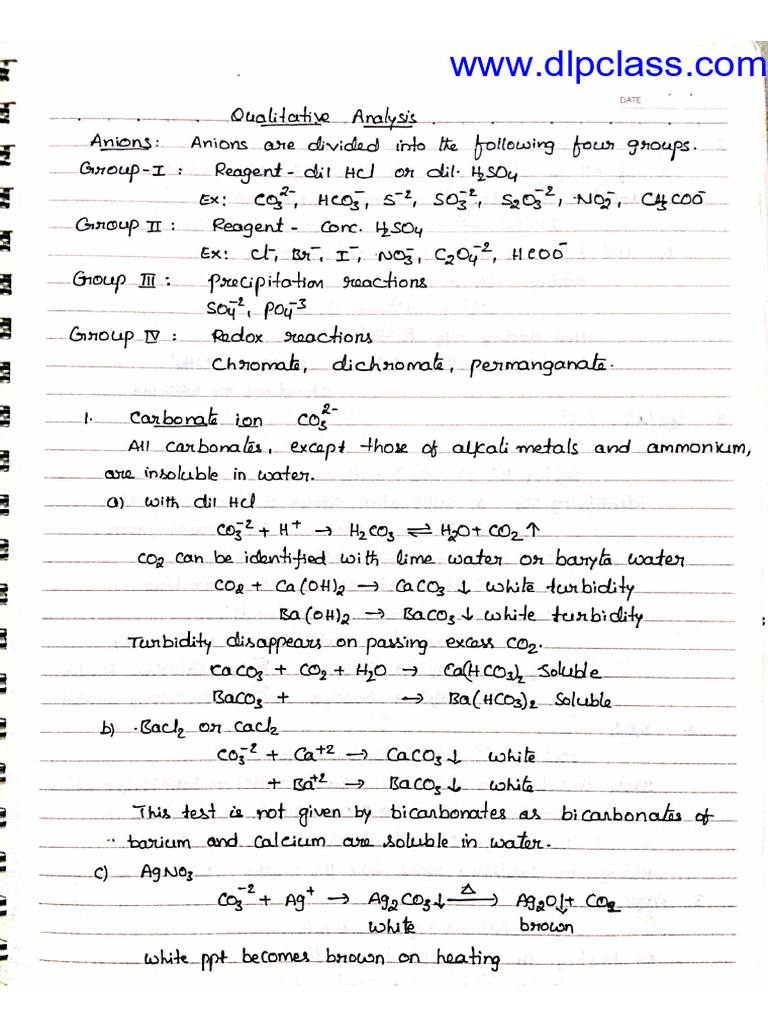 www.dlpclass.com
DATE
Qualitative Analysis
Anions: Anions are divided into the following four groups.
Group-I : Reagent - dil HCl or dil. H₂SO₄
Ex: CO₃²⁻, HCO₃⁻, S⁻², SO₃⁻², S₂O₃⁻², NO₂⁻, CH₃COO⁻
Group II : Reagent - Conc. H₂SO₄
Ex: Cl⁻, Br⁻, I⁻, NO₃⁻, C₂O₄⁻², HCOO⁻
Group III : Precipitation reactions
SO₄⁻², PO₄⁻³
Group IV : Redox reactions
Chromate, dichromate, permanganate.
1. Carbonate ion CO₃²⁻
All carbonates, except those of alkali metals and ammonium,
are insoluble in water.
a) with dil HCl
CO₃⁻² + H⁺ → H₂CO₃ ⇌ H₂O + CO₂ ↑
CO₂ can be identified with lime water or baryta water
CO₂ + Ca(OH)₂ → CaCO₃ ↓ white turbidity
Ba(OH)₂ → BaCO₃ ↓ white turbidity
Turbidity disappears on passing excess CO₂.
CaCO₃ + CO₂ + H₂O → Ca(HCO₃)₂ Soluble
BaCO₃ + → Ba(HCO₃)₂ Soluble
b) BaCl₂ or CaCl₂
CO₃⁻² + Ca⁺² → CaCO₃ ↓ white
+ Ba⁺² → BaCO₃ ↓ white
This test is not given by bicarbonates as bicarbonates of
barium and calcium are soluble in water.
c) AgNO₃
CO₃⁻² + Ag⁺ → Ag₂CO₃ ↓ —Δ→ Ag₂O ↓ + CO₂
white brown
white ppt becomes brown on heating